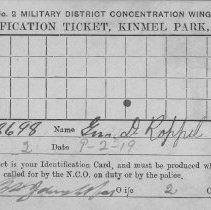 No. 2 MILITARY DISTRICT CONCENTRATION WING
FICATION TICKET, KINMEL PARK,
8698 Name Geo. D. Koppel
2 Date 9-2-19
ct is your Identification Card, and must be produced wh
called for by the N.C.O. on duty or by the police.
O i/c 2